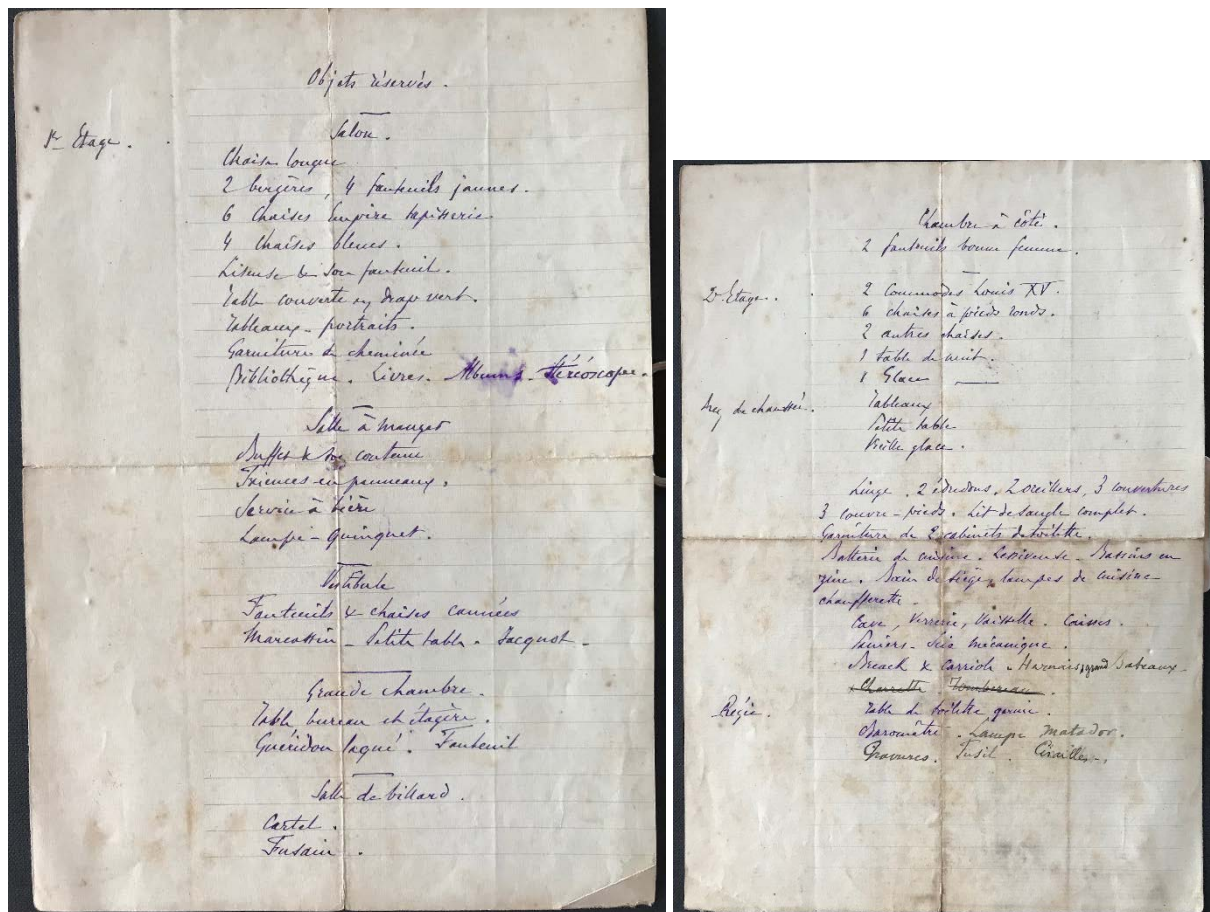 Objets réservés.
Salon.
1er Etage.
Chaise longue
2 bergères, 4 fauteuils jaunes.
6 Chaises Empire tapisserie
4 Chaises bleues.
Liseuse & son fauteuil.
Table couverte en drap vert.
Tableaux - portraits.
Garniture de cheminée
Bibliothèque. Livres. Albums. Stéréoscope.
Salle à manger
Buffet & son contenu
Faïences en panneaux.
Service à bière
Lampe - quinquet.
Vestibule
Fauteuils & chaises cannées
Marcassin - Petite table. Jacquot -
Grande chambre.
Table bureau et étagère.
Guéridon laqué. Fauteuil
Salle de billard.
Cartel.
Fusain.
Chambre à côté.
2 fauteuils bonne femme.
2e Etage.
2 Commodes Louis XV.
6 chaises à pieds ronds.
2 autres chaises.
1 table de nuit.
1 Glace
Rez de chaussée.
Tableaux
Petite table
Vieille glace.
Linge. 2 édredons, 2 oreillers, 3 couvertures
3 couvre-pieds. Lit de sangle complet.
Garniture de 2 cabinets de toilette.
Batterie de cuisine. Lessiveuse - Bassins en
zinc. Bain de siège, lampes de cuisine -
chaufferette.
Cave, Verrerie, Vaisselle. Caisses.
Paniers - Scie mécanique.
Breack & carriole. Harnais, grand
Charrette Tombereau.
Régie.
Table de toilette garnie.
Baromètre. Lampe Matador.
Gravures. Fusil. Cisailles.